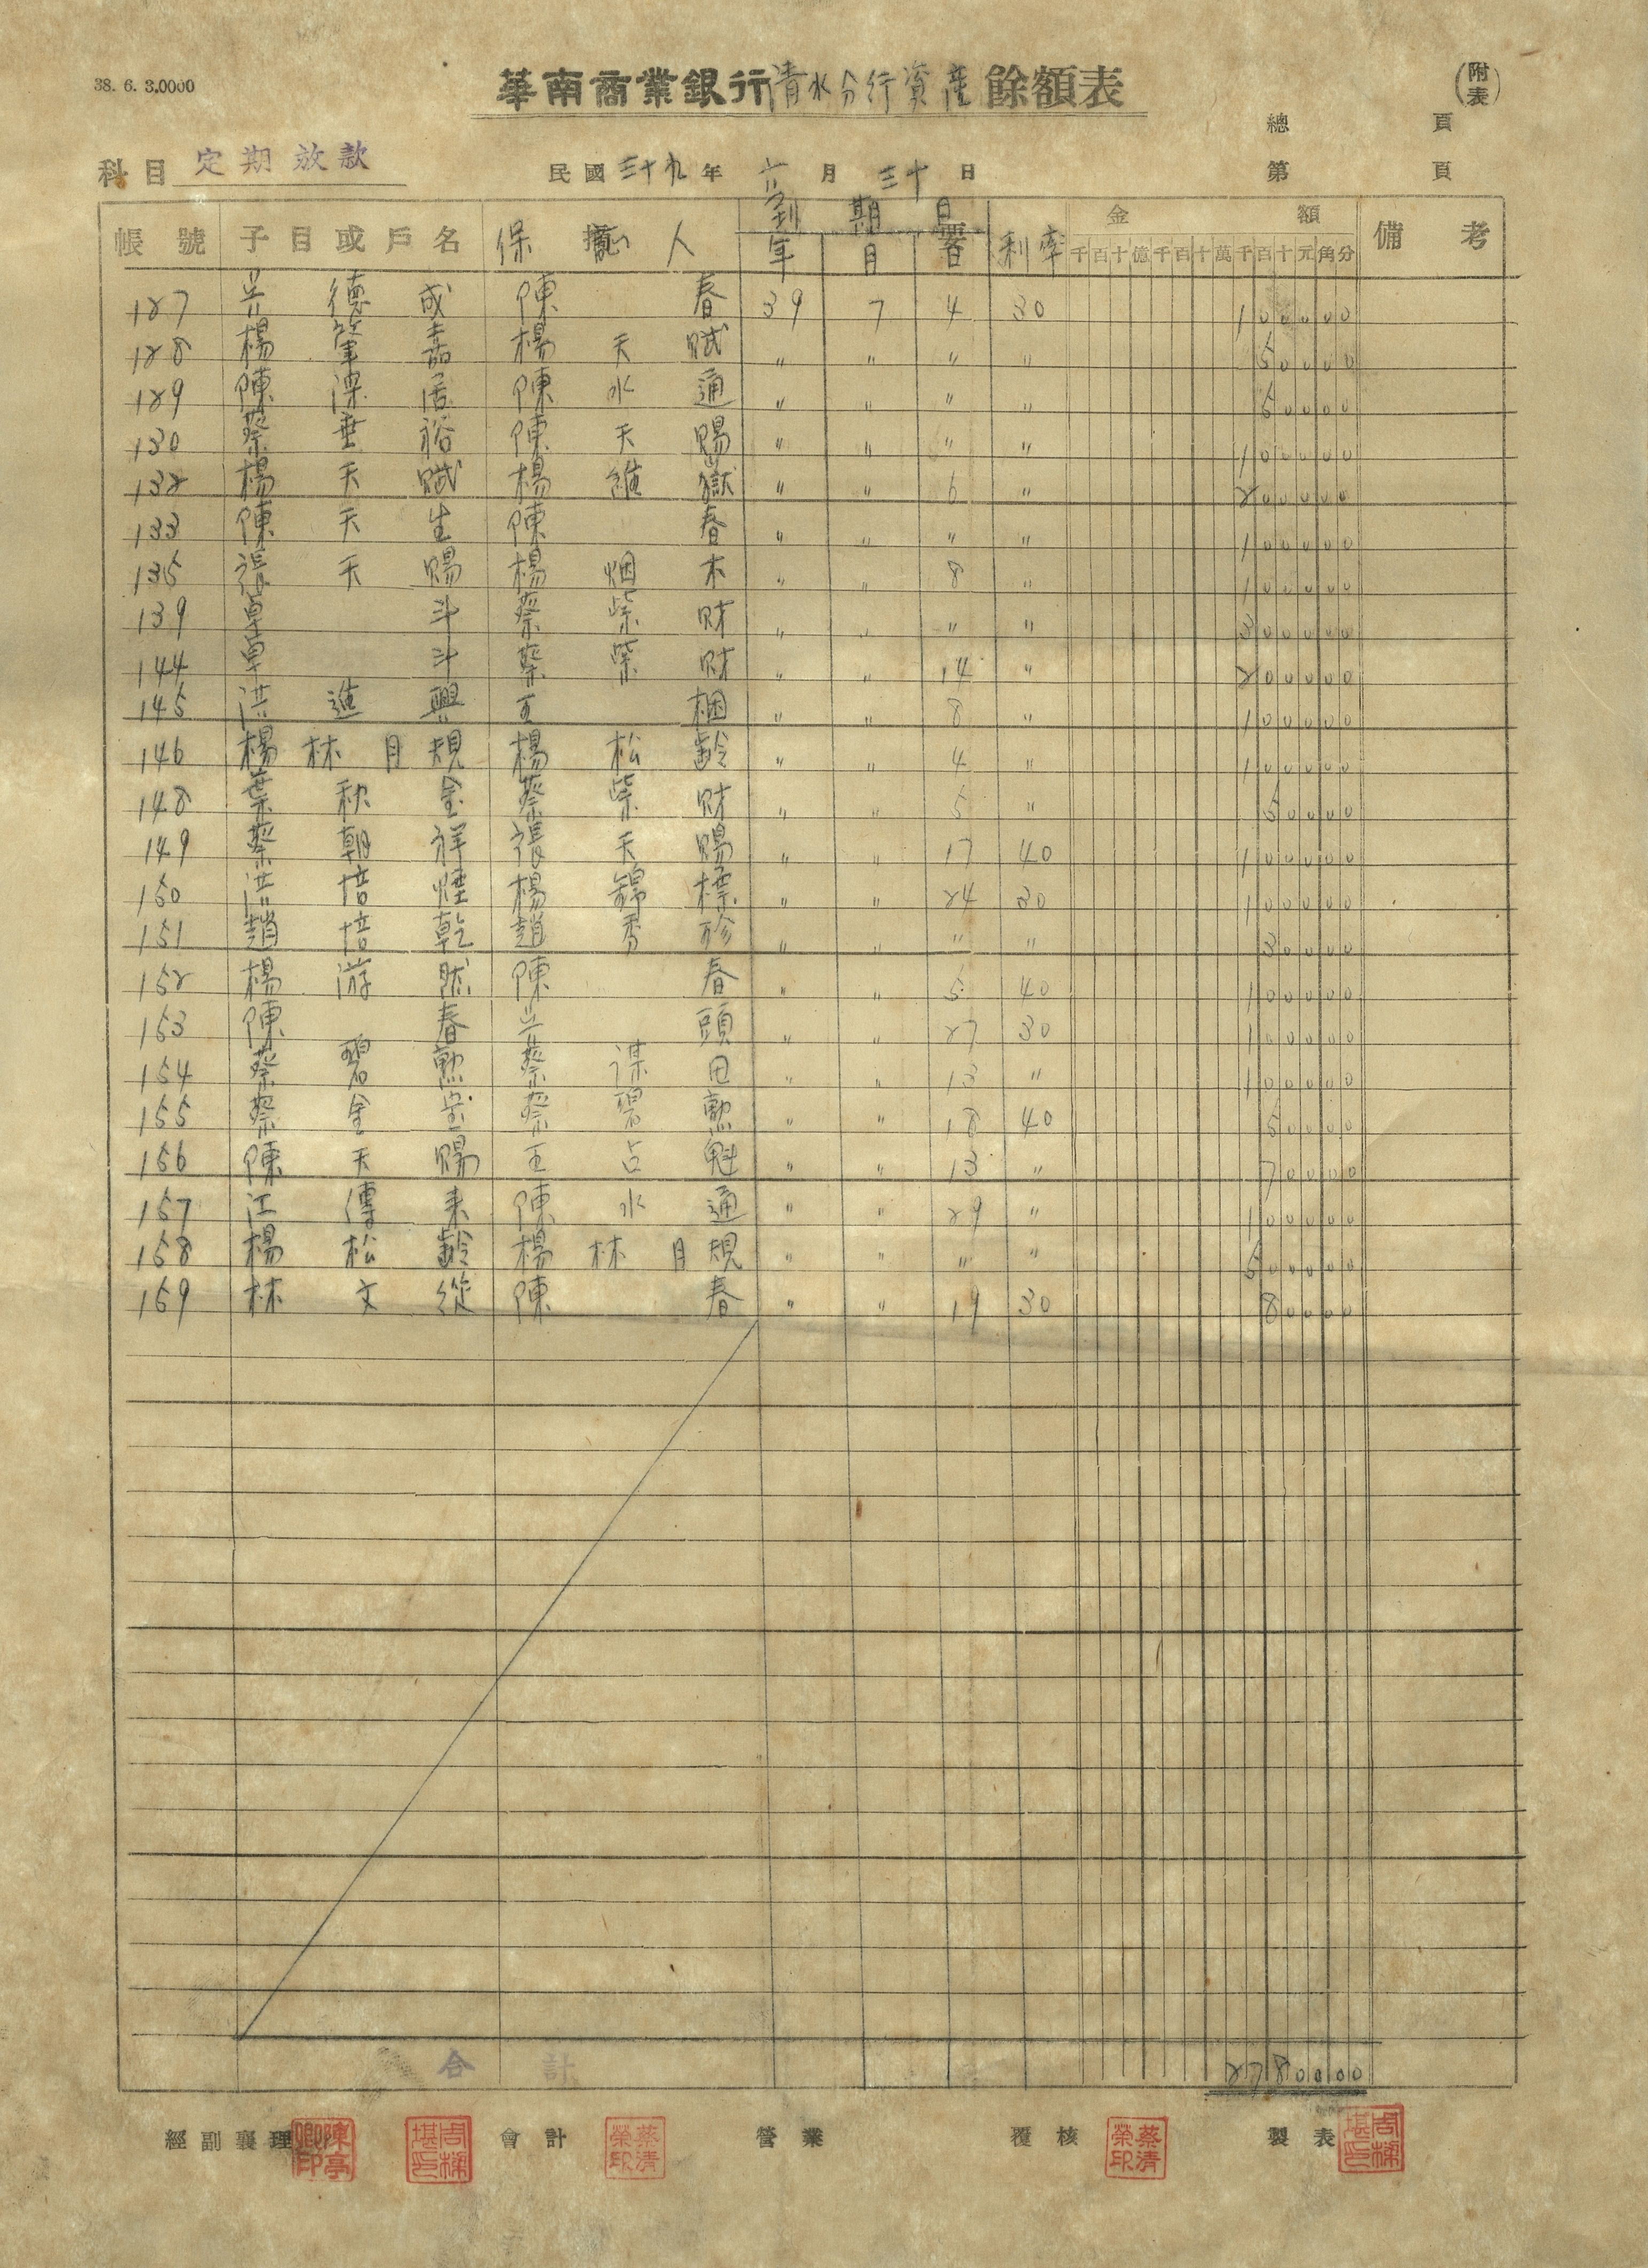 38. 6. 3.0000
華南商業銀行清水分行資產餘額表
(附表)
總 頁
科目 定期放款 民國三十九年六月三十日 第 頁
帳號 子目或戶名 保 人 到期日 利率 金額 備考
年 月 千百十億千百十萬千百十元角分
127 德成 陳春 39 7 4 30 100000
128 楊肇嘉 楊天賦 〃 〃 〃 〃 50000
129 陳深居 陳水通 〃 〃 〃 〃 50000
130 蔡垂裕 陳天賜 〃 〃 〃 〃 100000
132 楊天賦 楊維嶽 〃 〃 6 〃 200000
133 陳天生 陳春 〃 〃 〃 〃 100000
135 張天賜 楊烟木 〃 〃 8 〃 100000
139 卓斗 蔡柴財 〃 〃 〃 〃 300000
144 卓斗 蔡柴財 〃 〃 14 〃 200000
145 洪進興 王梱 〃 〃 8 〃 100000
146 楊林月規 楊松齡 〃 〃 4 〃 100000
148 葉秋金 蔡柴財 〃 〃 5 〃 50000
149 蔡朝祥 張天賜 〃 〃 17 40 100000
150 洪培煙 楊錦標 〃 〃 24 30 100000
151 趙培乾 趙秀珍 〃 〃 〃 〃 30000
152 楊游然 陳春 〃 〃 5 40 100000
153 陳春 頭 〃 〃 27 30 100000
154 蔡碧勲 蔡謀 〃 〃 13 〃 100000
155 蔡金 蔡碧勲 〃 〃 18 40 50000
156 陳天賜 王占魁 〃 〃 13 〃 70000
157 江傳来 陳水通 〃 〃 29 〃 100000
158 楊松齡 楊林月規 〃 〃 〃 〃 500000
159 林文從 陳春 〃 〃 19 30 80000
合計 2780000
經副襄理 陳亭卿印 周梯堪印 會計 蔡清榮印 營業 覆核 蔡清榮印 製表 周梯堪印